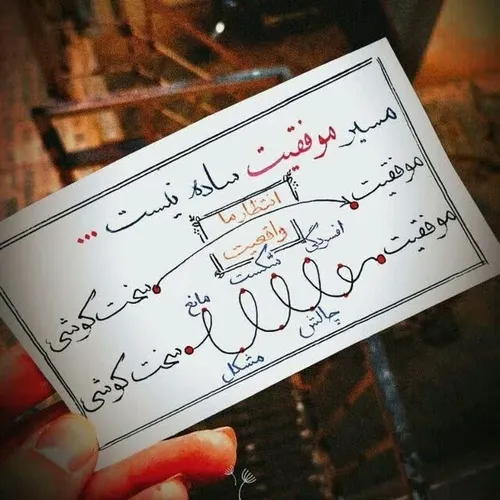 مسیر موفقیت ساده نیست ...
انتظار ما
موفقیت
سخت کوشی
واقعیت
موفقیت
افسردگی
شکست
مانع
چالش
مشکل
سخت کوشی